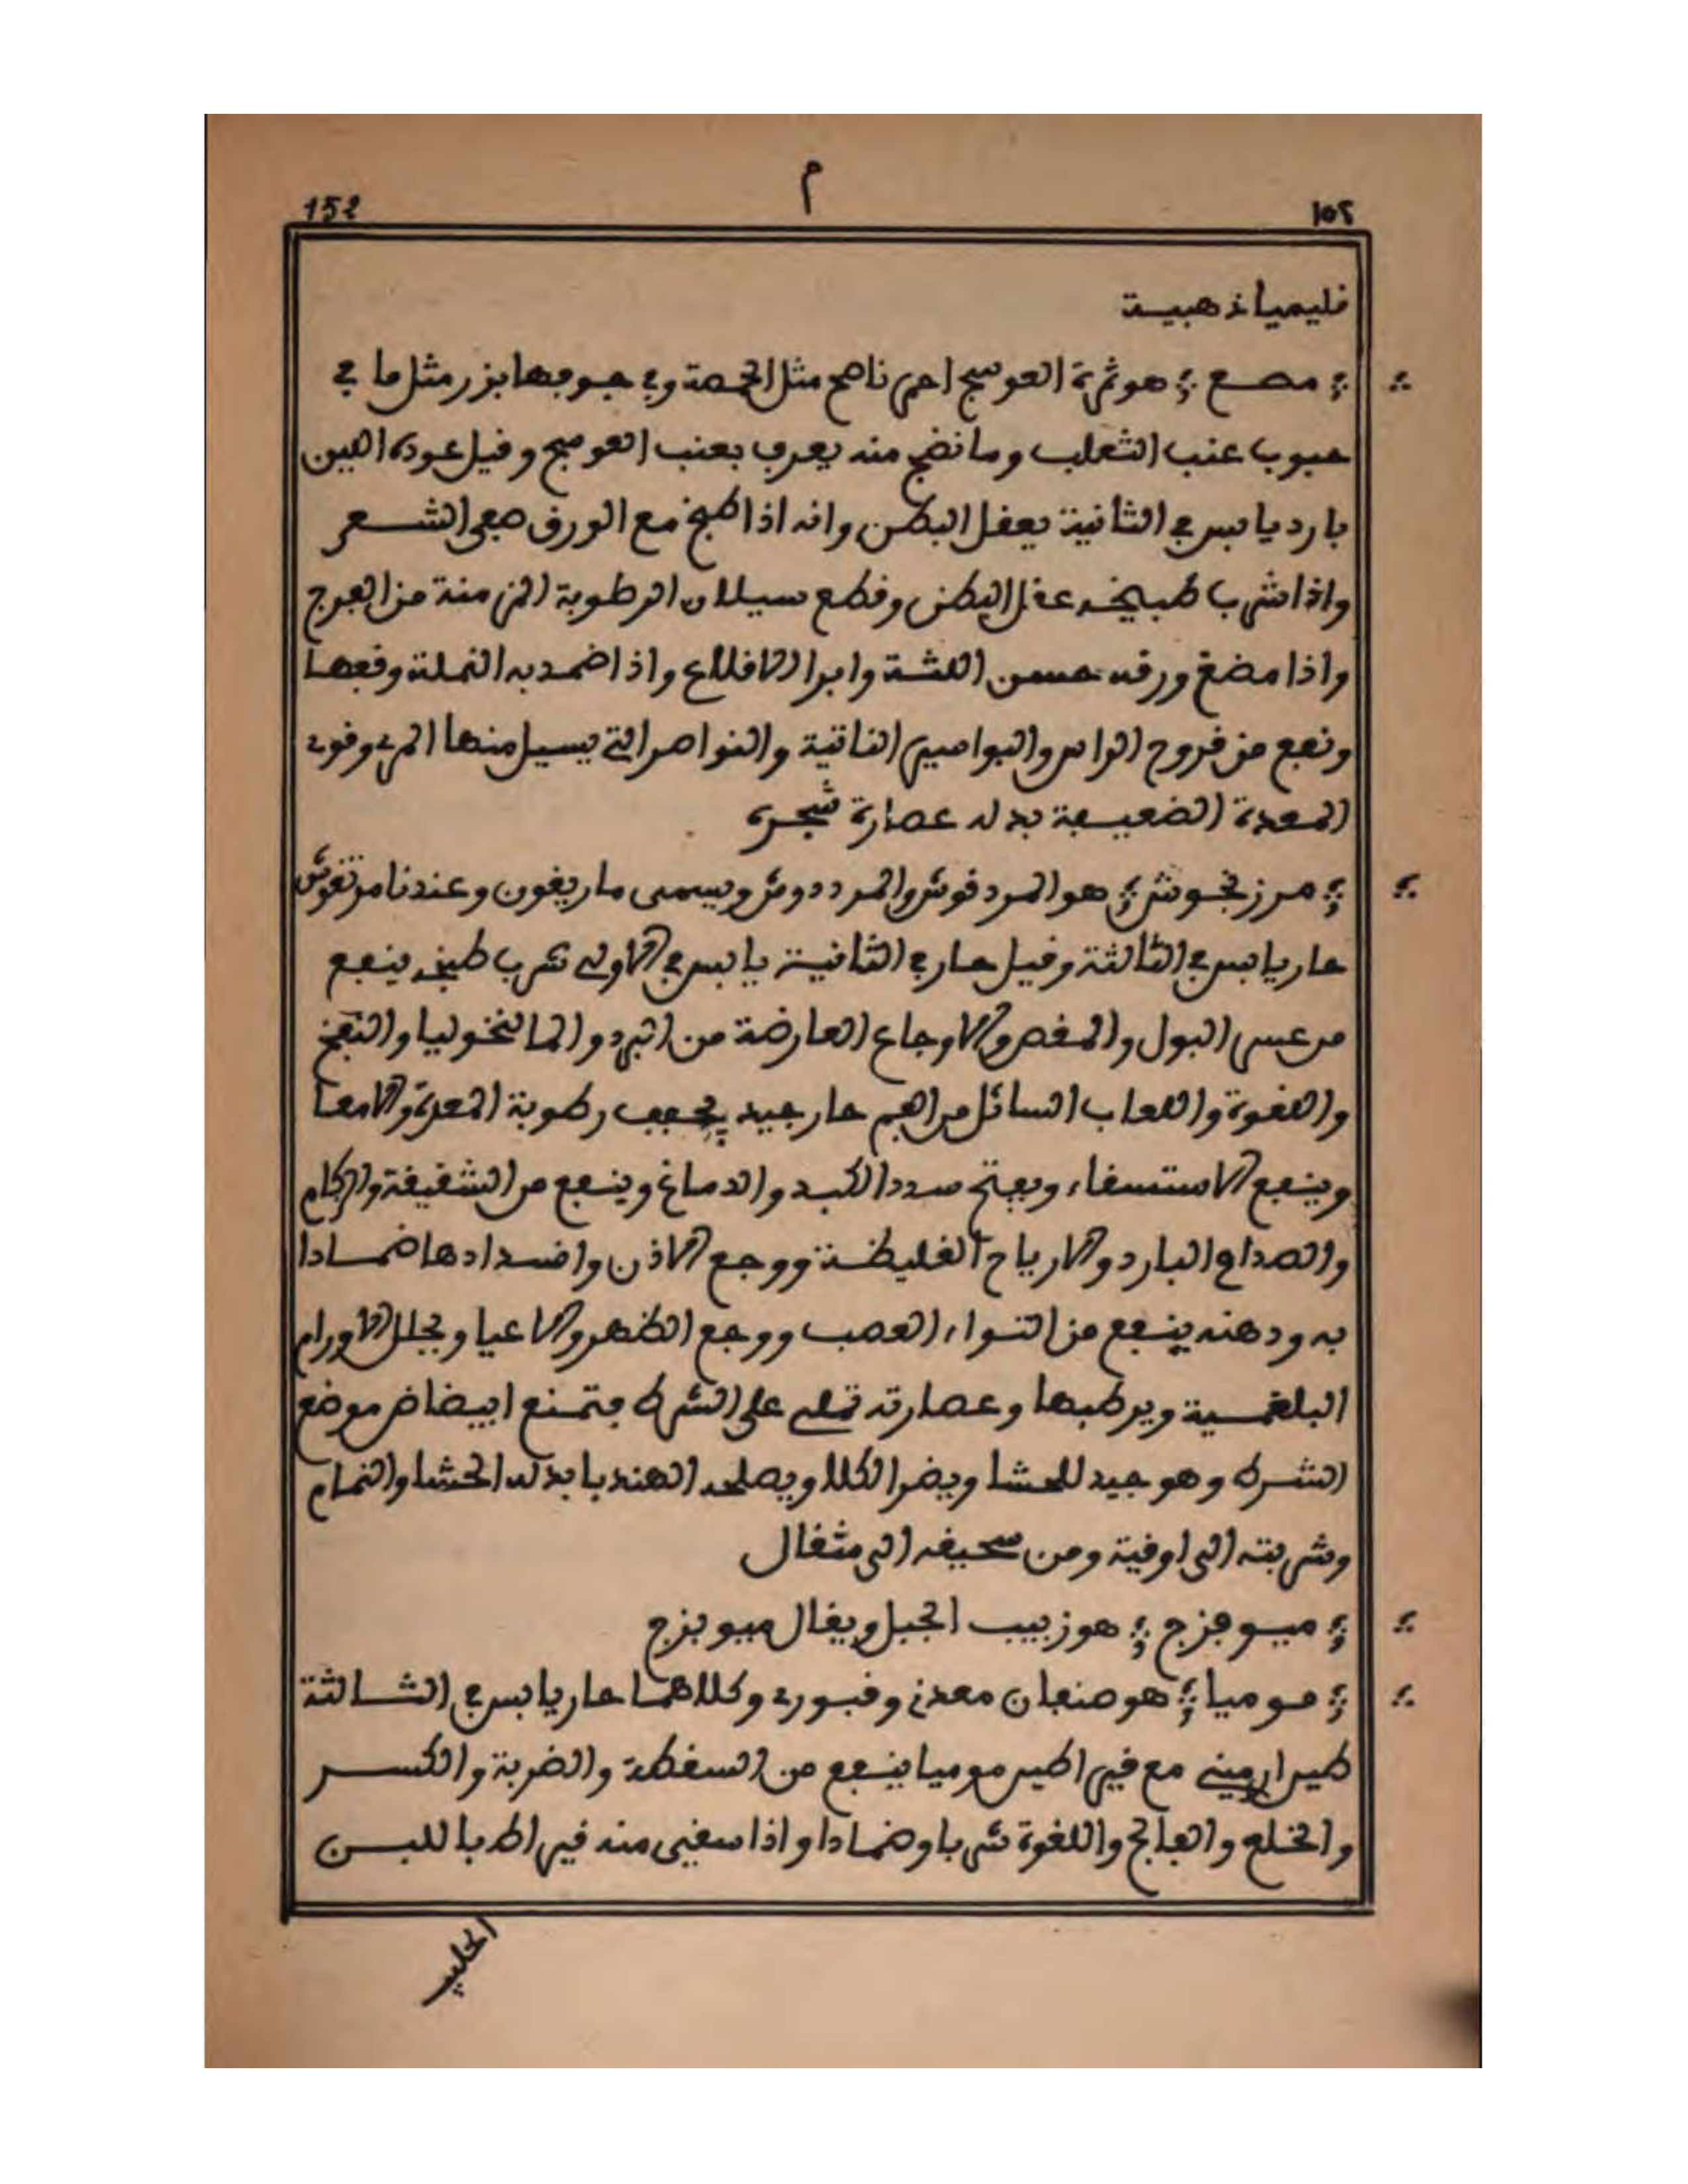 م
152
١٥٢
قليميا ذهبية
مصع هو ثمرة العوسج احمر ناصع مثل الحمصة وفي جوفها بزر مثل ما في
حبوب عنب الثعلب وما نضج منه يعرف بعنب العوسج وقيل عوده البين
بارد يابس في الثانية يعقل البطن وانه اذا طبخ مع الورق صفى الشعر
واذا شرب طبيخه عقل البطن وقطع سيلان الرطوبة المزمنة من الفرج
واذا مضغ ورقه حسن اللثة وابرا الاقلاع واذا ضمد به النملة وقفها
ونفع من قروح الراس والبواسير الناتية والنواصر التي يسيل منها الدم وقوى
المعدة الضعيفة بدله عصارة شجره
مرزنجوش هو المردقوش والمرددوش ويسمى ماريغون وعندنا مرتقوش
حار يابس في الثالثة وقيل حار في الثانية يابس في الاولى شرب طبخه ينفع
من عسر البول والمغص والاوجاع العارضة من البرد والمالنخوليا والنفخ
واللقوة واللعاب السائل من الفم حار جيد يجفف رطوبة المعدة والامعا
وينفع الاستسقاء ويفتح سدد الكبد والدماغ وينفع من الشقيقة والزكام
والصداع البارد والارياح الغليظة ووجع الاذن وانسدادها ضمادا
به ودهنه ينفع من التواء العصب ووجع الظهر والاعيا ويحلل الاورام
البلغمية ويرطبها وعصارته تطلى على الشرط فتمنع ابيضاض موضع
الشرط وهو جيد للحشا ويضر الكلا ويصلحه الهندبا بدله الحشا والنمام
وشربته الى اوقية ومن سحيقه الى مثقال
ميوفزج هو زبيب الجبل ويقال ميوبزج
موميا هو صنفان معدني وقبوري وكلاهما حار يابس في الثالثة
طين ارميني مع قيراطين موميا ينفع من السقطة والضربة والكسر
والخلع والفالج واللقوة شربا وضمادا واذا سقي منه قيراط باللبن
الحليب